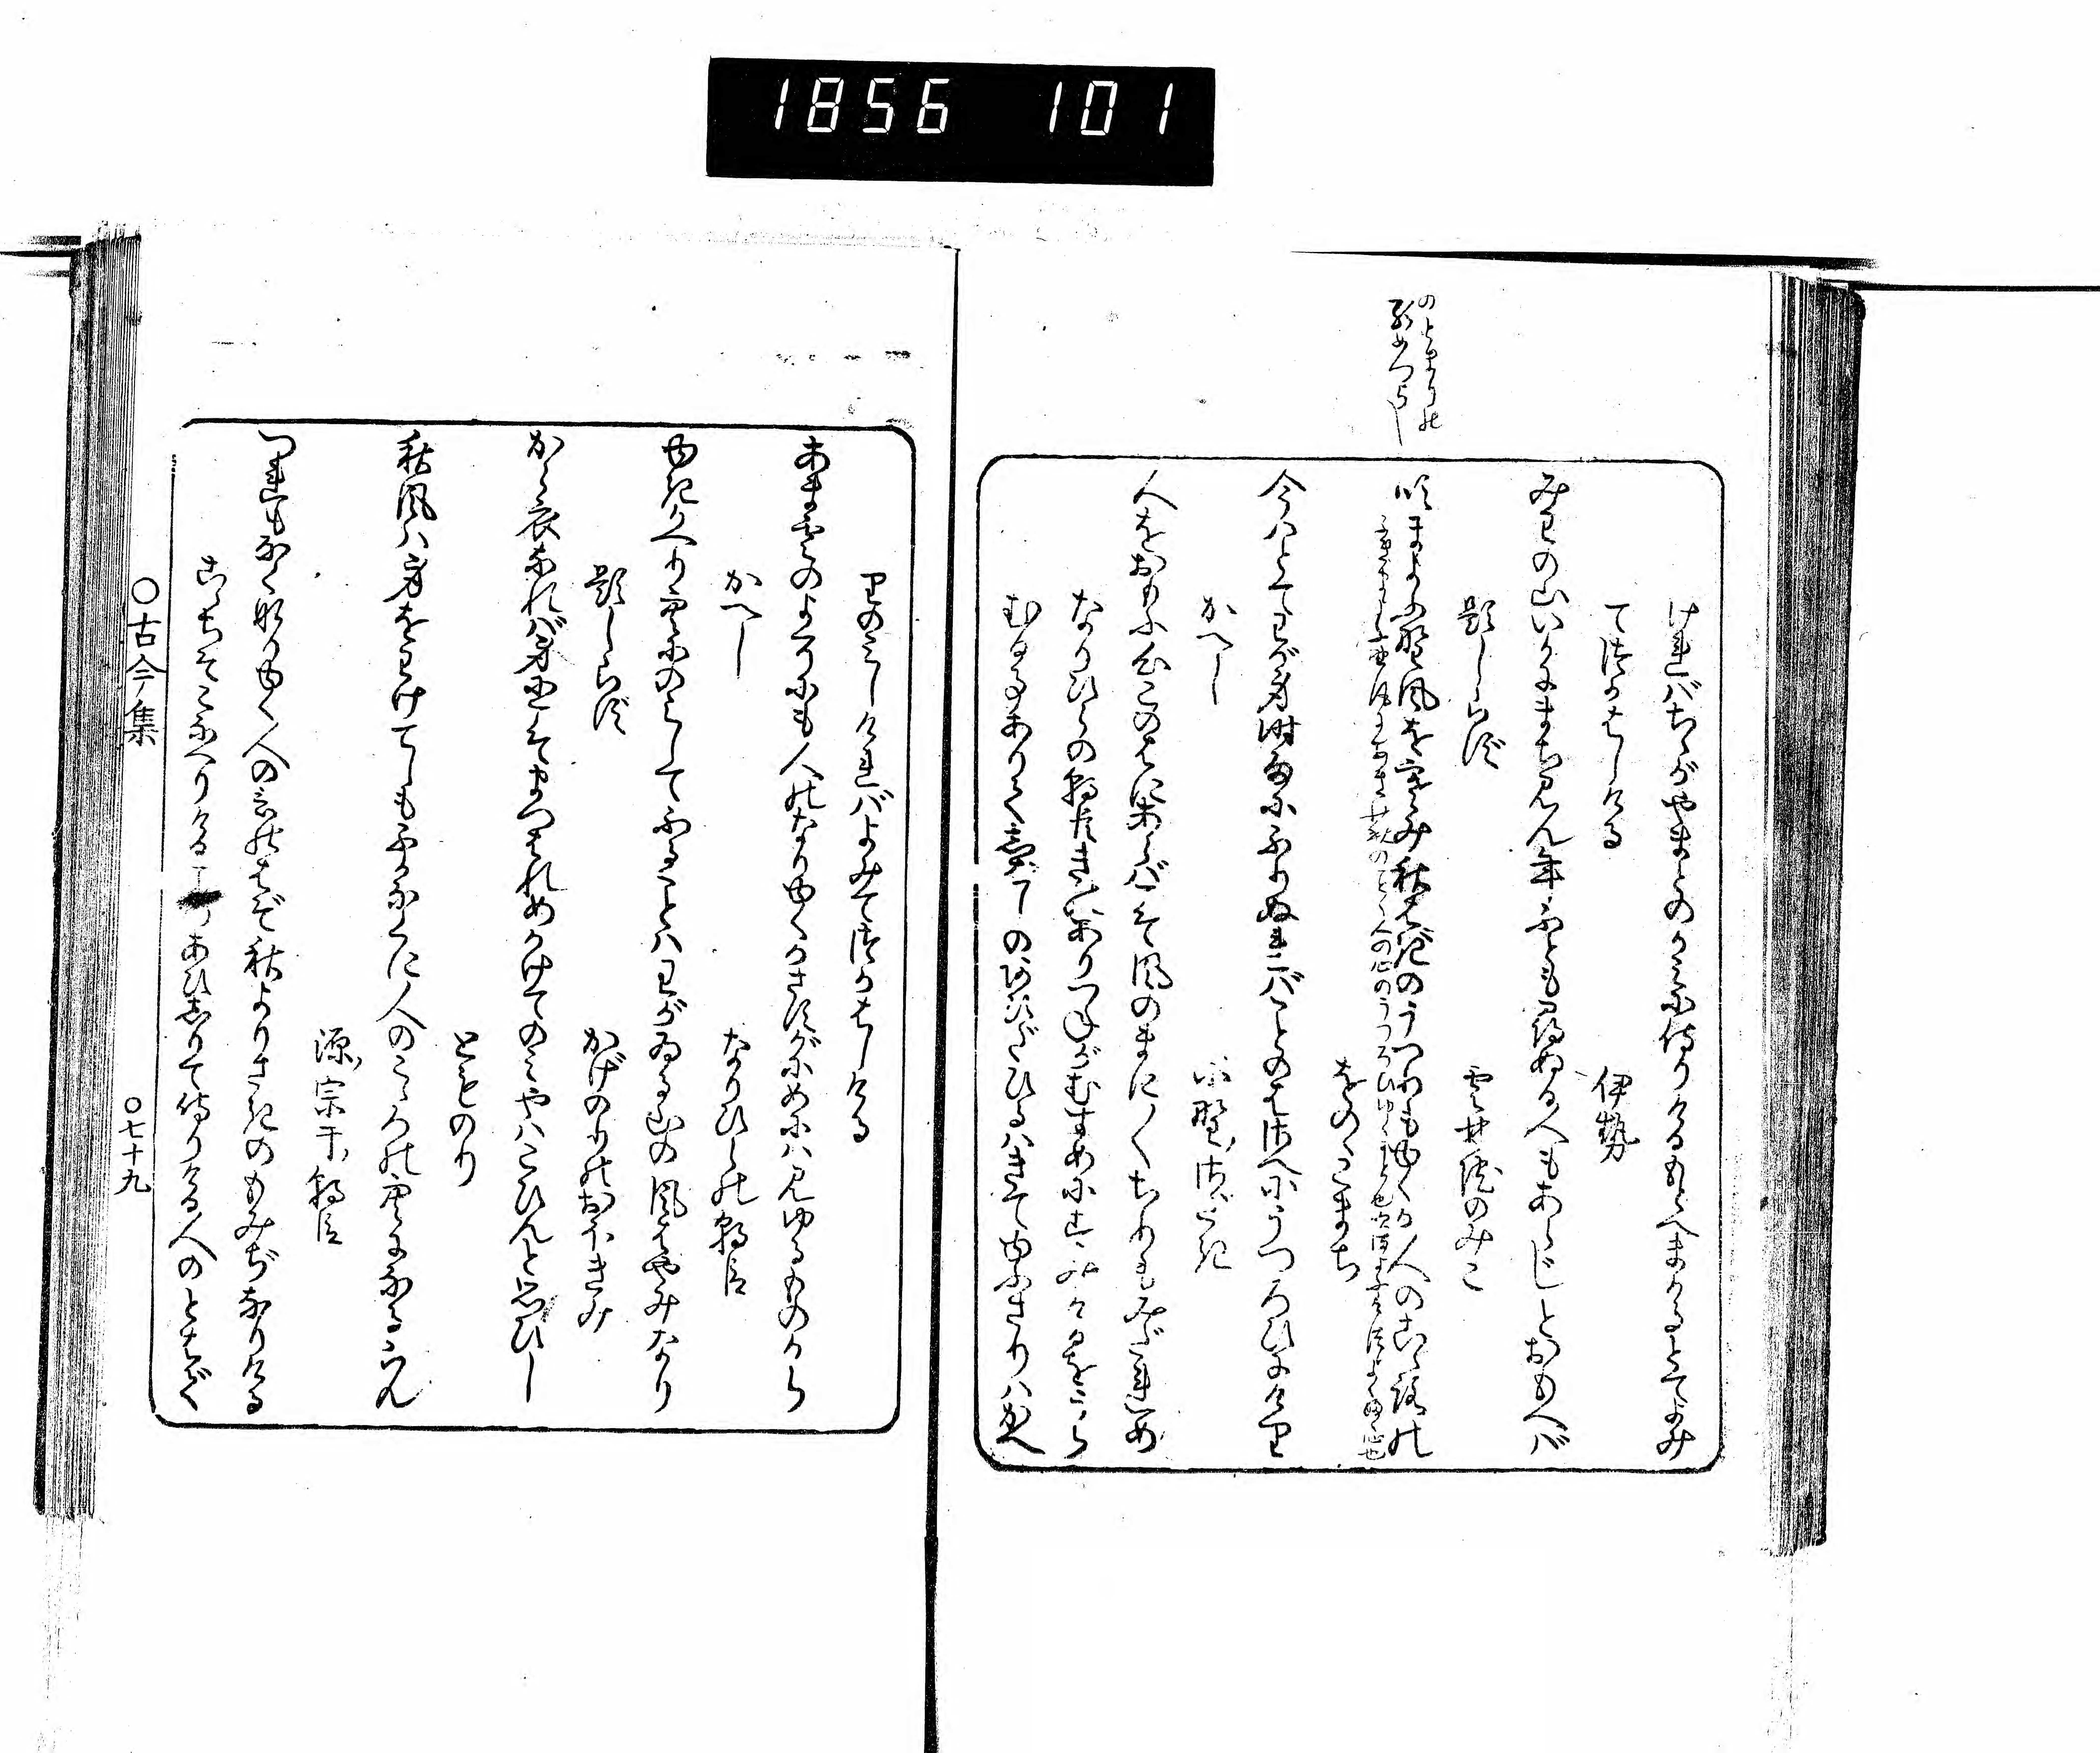 1856 101
のとまりの
けれバちゝがやまとのかミに侍りけるもとへまかるとてよみ
てつかはしける
伊勢
みわの山いかにまち見ん年ふとも尋ぬる人もあらじとおもへバ
題しらず
雲林院のみこ
吹まよふ野風を寒み秋はぎのうつりもゆくか人のこゝろの
をのゝこまち
今ハとてわが身時雨にふりぬれバことのはさへにうつろひにけり
かへし
小野さだき
人をおもふ心このはにあらバこそ風のまに〳〵ちりもみだれめ
なりひらの朝臣きのありつねがむすめにすみけるをうら
むる事ありてしバしのあひだひるハきてゆふさりハかへ
りのミしけれバよみてつかはしける
あま雲のよそにも人のなりゆくかさすがにめにハ見ゆるものから
かへし
なりひらの朝臣
ゆきかへり空にのミしてふることハわがゐる山の風はやみなり
題しらず
かげのりのおほきみ
から衣なれバ身にこそまつはれめかけてのミやハこひんと思ひし
とものり
秋風ハ身をわけてしもふかなくに人のこゝろの空になるらん
源宗于朝臣
つれもなくなりゆく人の言のはぞ秋よりさきのもみぢなりける
こゝちそこなへりけるころあひしりて侍りける人のとはで
〇古今集
〇七十九